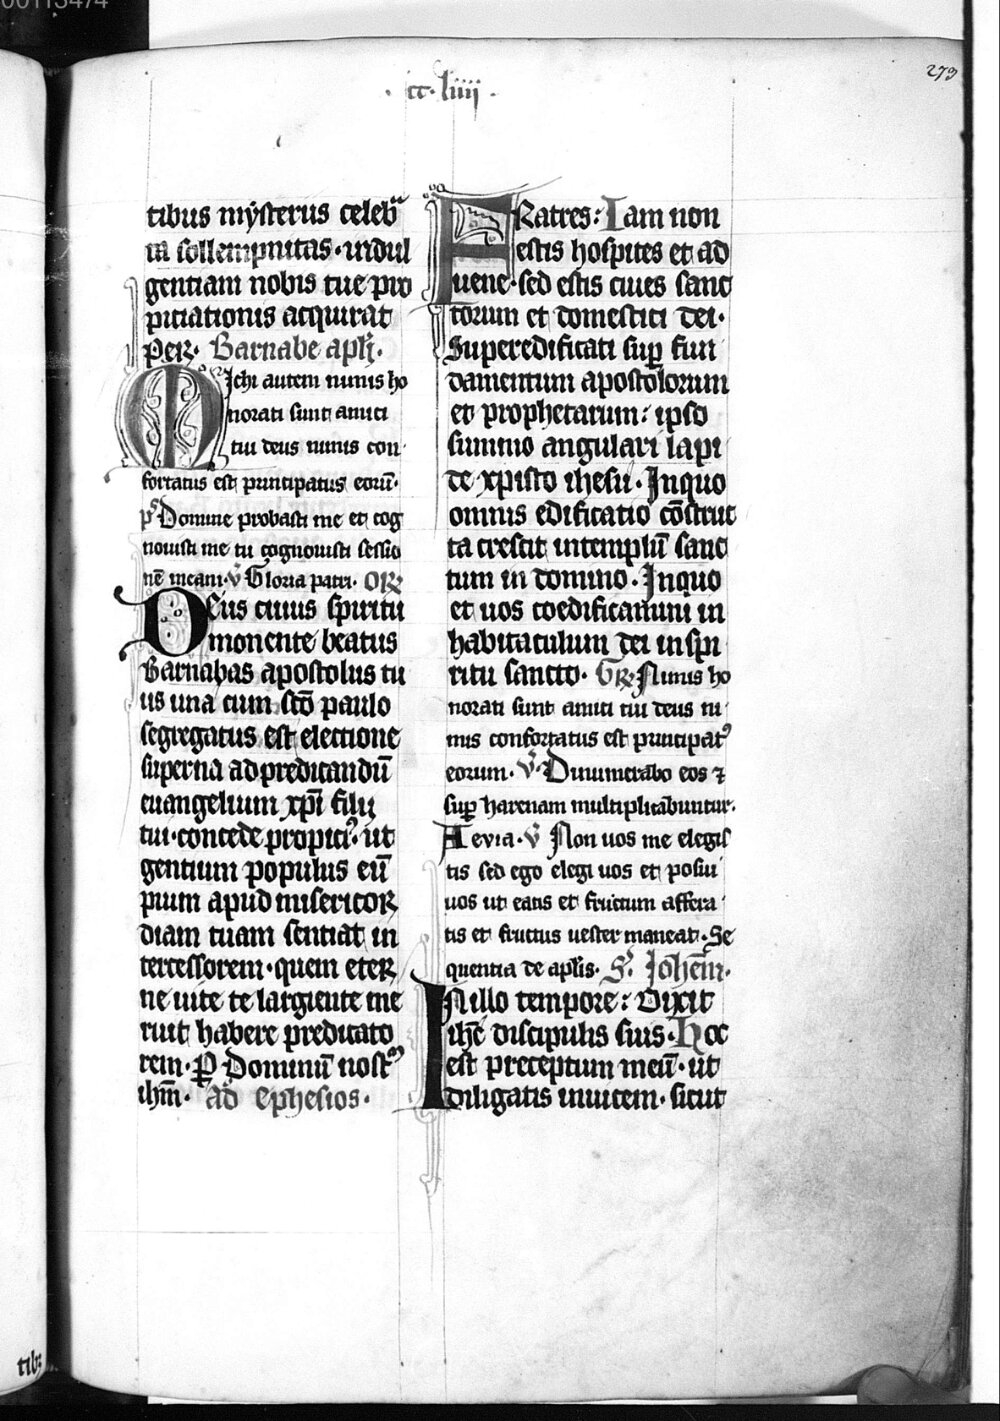 00113474
· cc · liiii ·
273
tibus mysteriis celebra
ta sollempnitas · indul
gentiam nobis tue pro
piciationis acquirat
Per · Barnabe apli ·
Michi autem nimis ho
norati sunt amici
tui deus nimis con
fortatus est principatus eorum̄ ·
ps Domine probasti me et cog
nouisti me tu cognouisti sessio
nē meam · v̄ Gloria patri · Or̄
Deus cuius spiritu
monente beatus
Barnabas apostolus tu
us una cum sc̄o paulo
segregatus est electione
superna ad predicandū
euangelium xp̄i filij
tui · concede propici⁹ · ut
gentium populus eū
pium apud misericor
diam tuam sentiat in
tercessorem · quem eter
ne uite te largiente me
ruit habere predicato
rem · ꝑ Dominū nostr̄
ih̄m · ad ephesios ·
Fratres : Iam non
estis hospites et ad
uene · sed estis ciues sanc
torum et domestici dei ·
Superedificati suꝑ fun
damentum apostolorum
et prophetarum : ipso
summo angulari lapi
de xpisto ihesu · In quo
omnis edificatio cōstruc
ta crescit in templū sanc
tum in domino · In quo
et uos coedificamini in
habitaculum dei in spi
ritu sancto · Gr̄ Nimis ho
norati sunt amici tui deus ni
mis confortatus est principat⁹
eorum · v̄ · Dinumerabo eos ⁊
suꝑ harenam multiplicabuntur ·
Aevia · v̄ Non uos me elegis
tis sed ego elegi uos et posui
uos ut eatis et fructum affera
tis et fructus uester maneat · Se
quentia de aplis · S · Johem̄ ·
In illo tempore : Dixit
ihē discipulis suis · Hoc
est preceptum meū · ut
diligatis inuicem · sicut
tib;